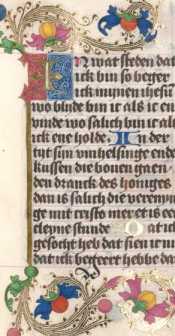 In wat steden dat
ick bin so beger
ick mynen ihesū
wo blyde bin ic als ic en
vinde wo salich bin ic als
ick ene holde. In der
tyt syn umhelsinge ende
kussen die bouen gaen
den dranck des honiges
dan is salich die verenyn
ge mit cristo mer et is ee
cleyne stunde O at ic
gesocht heb dat sien ic nu
dat ick begeert hebbe da